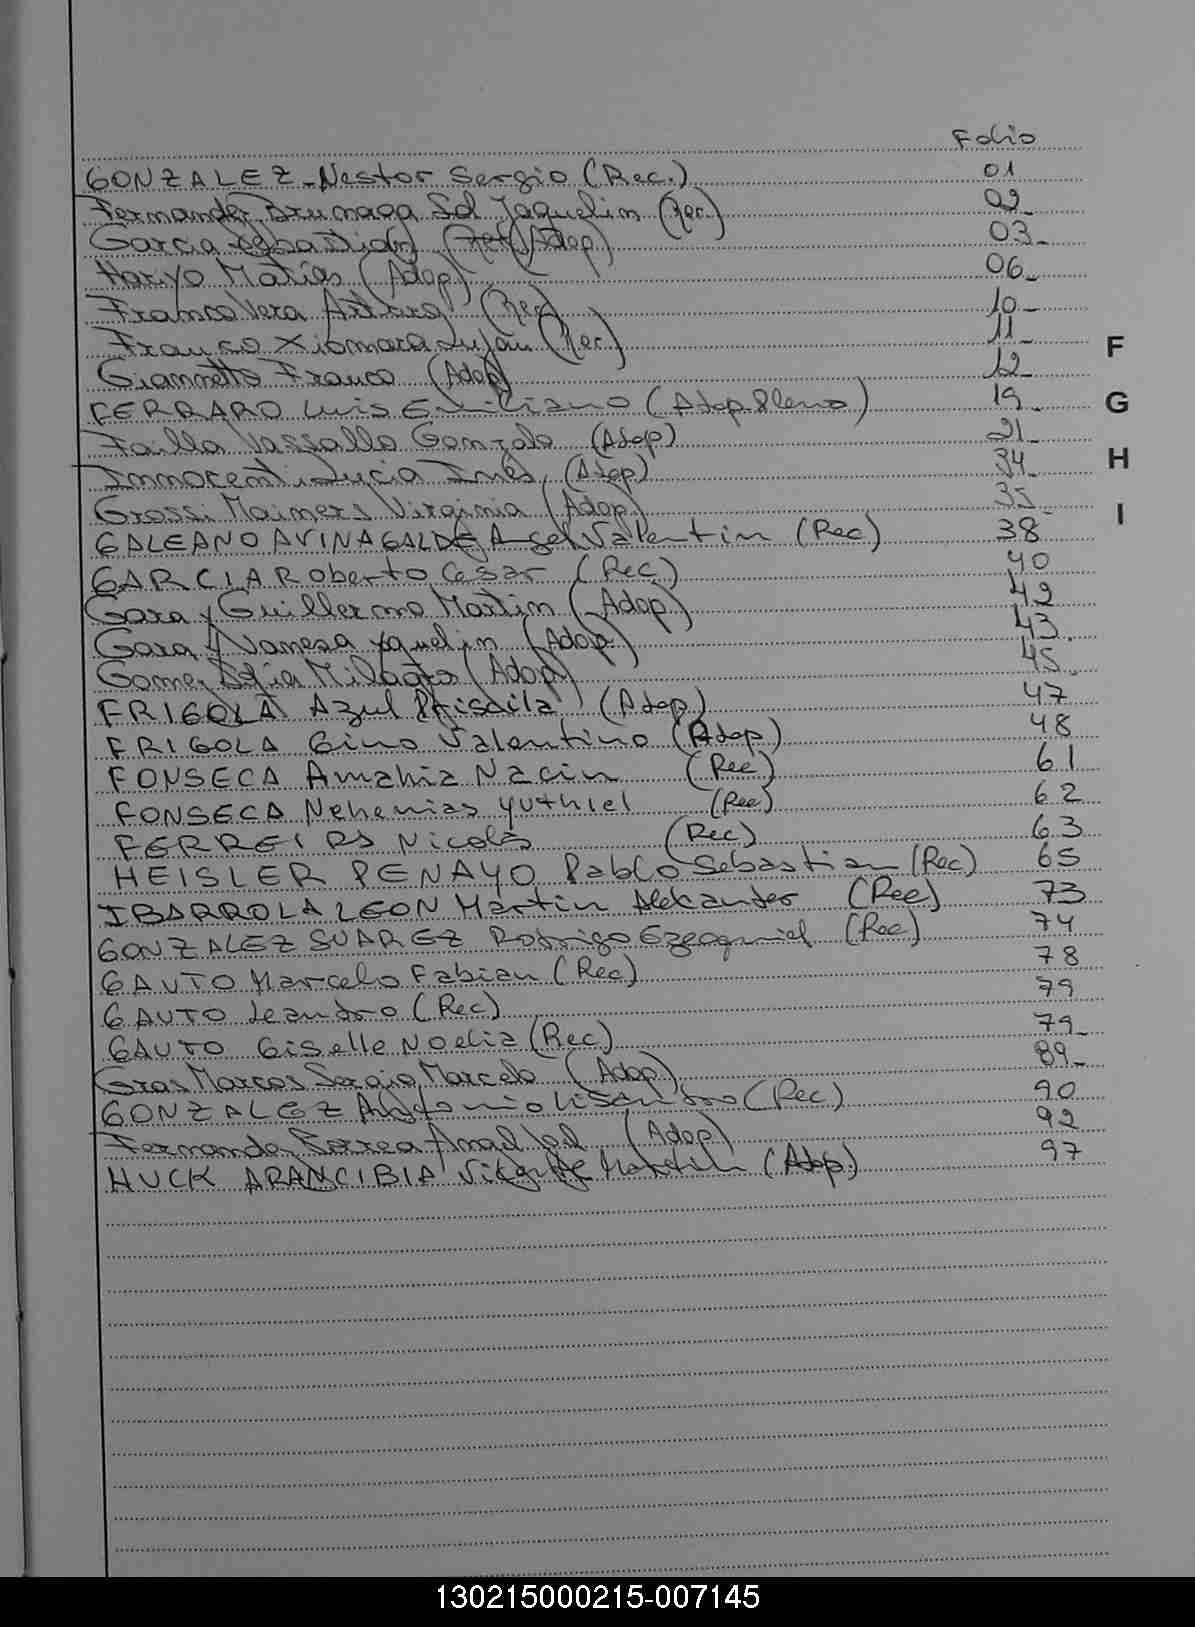 Folio
GONZALEZ - Nestor Sergio (Rec.) 01
Fernandez Brumaga Sol Jaquelin (Rec.) 02
Garcia Sebastian (Adop) 03
Haryo Matías (Adop) 06
Franco Vera Arturo (Rec) 10
Franco Xiomara Luján (Rec) 11
F
Giannetto Franco (Adop) 12
FERRARO Luis Emiliano (Adop. Plena) 19
G
Failla Vassallo Gonzalo (Adop) 21
H
Innocenti Lucia Inés (Adop) 34
Grossi Maimers Virginia (Adop) 35
I
GALEANO AVINAGALDE Angel Valentin (Rec) 38
GARCIA Roberto Cesar (Rec) 40
Garay Guillermo Martin (Adop.) 42
Garay Vanesa Yaquelin (Adop) 43
Gomez Sofia Milagros (Adop) 45
FRIGOLA Azul Priscila (Adop) 47
FRIGOLA Gino Valentino (Adop) 48
FONSECA Amahia Nacin (Rec) 61
FONSECA Nehemias Yuthiel (Rec) 62
FERREIRA Nicolás (Rec) 63
HEISLER PENAYO Pablo Sebastian (Rec) 65
IBARROLA LEON Martin Alexander (Rec) 73
GONZALEZ SUAREZ Rodrigo Ezequiel (Rec) 74
GAUTO Marcelo Fabian (Rec) 78
GAUTO Leandro (Rec) 79
GAUTO Giselle Noelia (Rec) 79
Gras Marcos Sergio Marcelo (Adop) 89
GONZALEZ Antonio Lisandro (Rec) 90
Fernandez Correa (Adop) 92
HUCK ARANCIBIA Martin (Adop.) 97
130215000215-007145